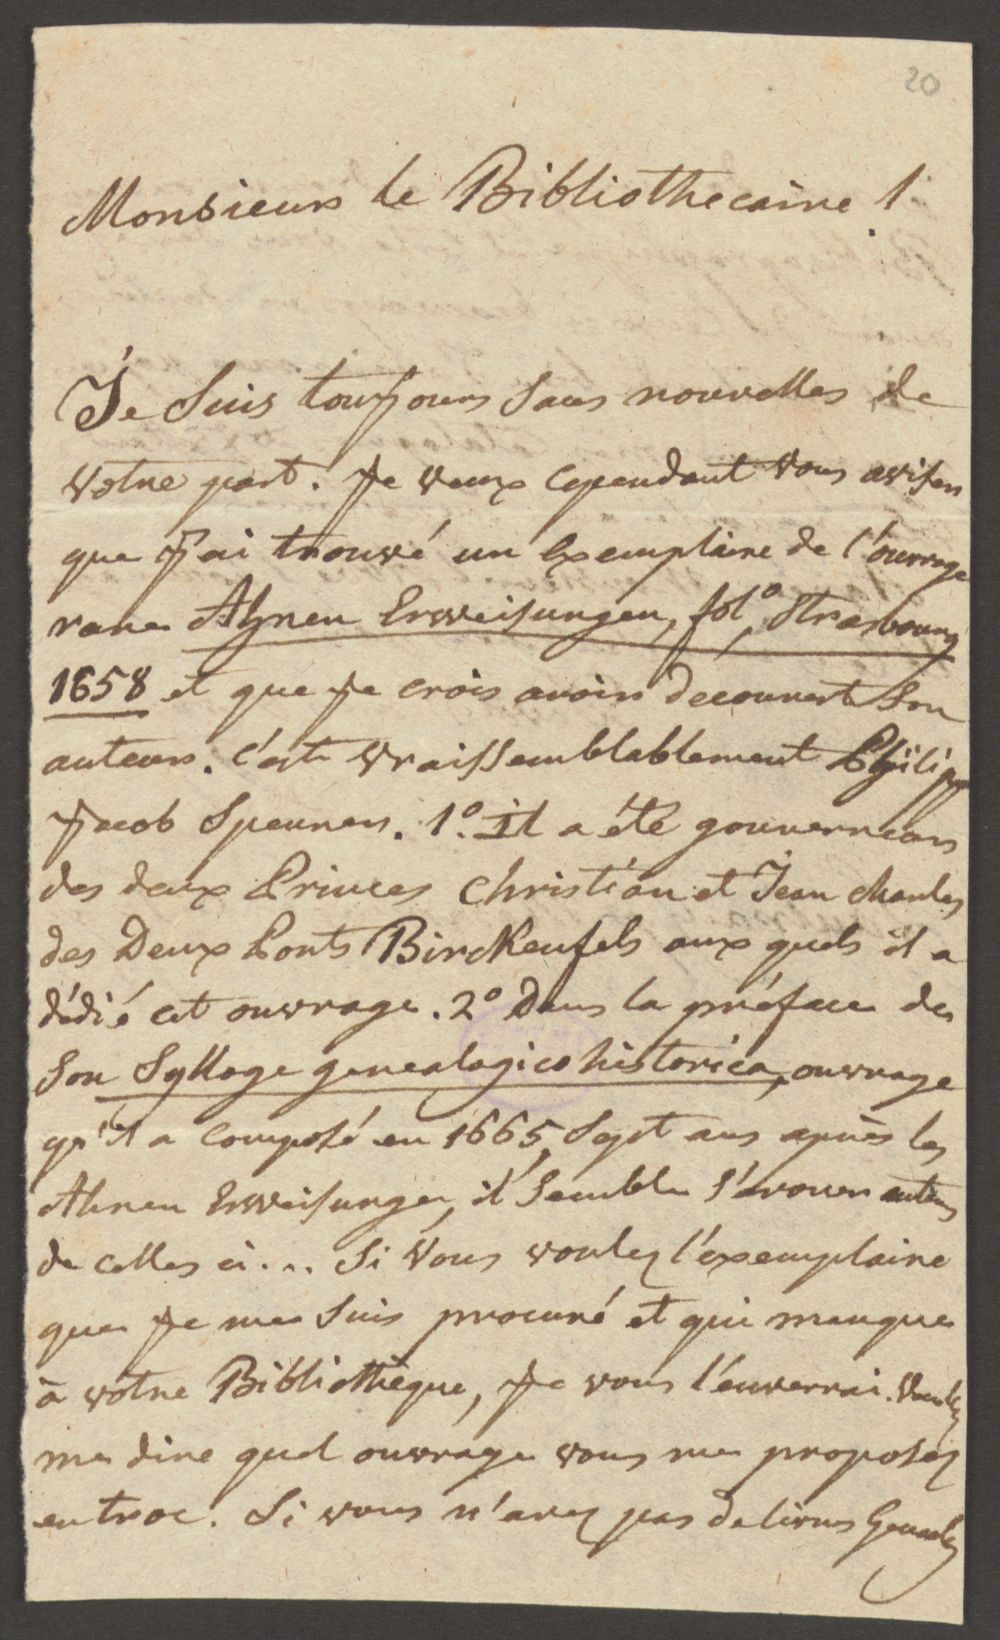 20
Monsieur le Bibliothecaire !
Je suis toujours sans nouvelles de
votre part. Je veux cependant vous aviser
que j'ai trouvé un exemplaire de l'ouvrage
rare Ahnen Erweisungen, fol.º Strasbourg
1658 et que je crois avoir decouvert son
auteur. c'est vraissemblablement Philipp
Jacob Spenner. 1.º Il a été gouverneur
des deux Princes Christian et Jean Charles
des Deux Ponts Birckenfels aux quels il a
dédié cet ouvrage. 2º Dans la préface de
son Sylloge genealogico historica, ouvrage
qu'il a composé en 1665, sept ans après les
Ahnen Erweisungen, il semble s'avouer auteur
de celles ci... Si vous voulez l'exemplaire
que je me suis procuré et qui manque
à votre Bibliothèque, je vous l'enverrai. Veuillez
me dire quel ouvrage vous me proposez
en troc. Si vous n'avez pas de livres